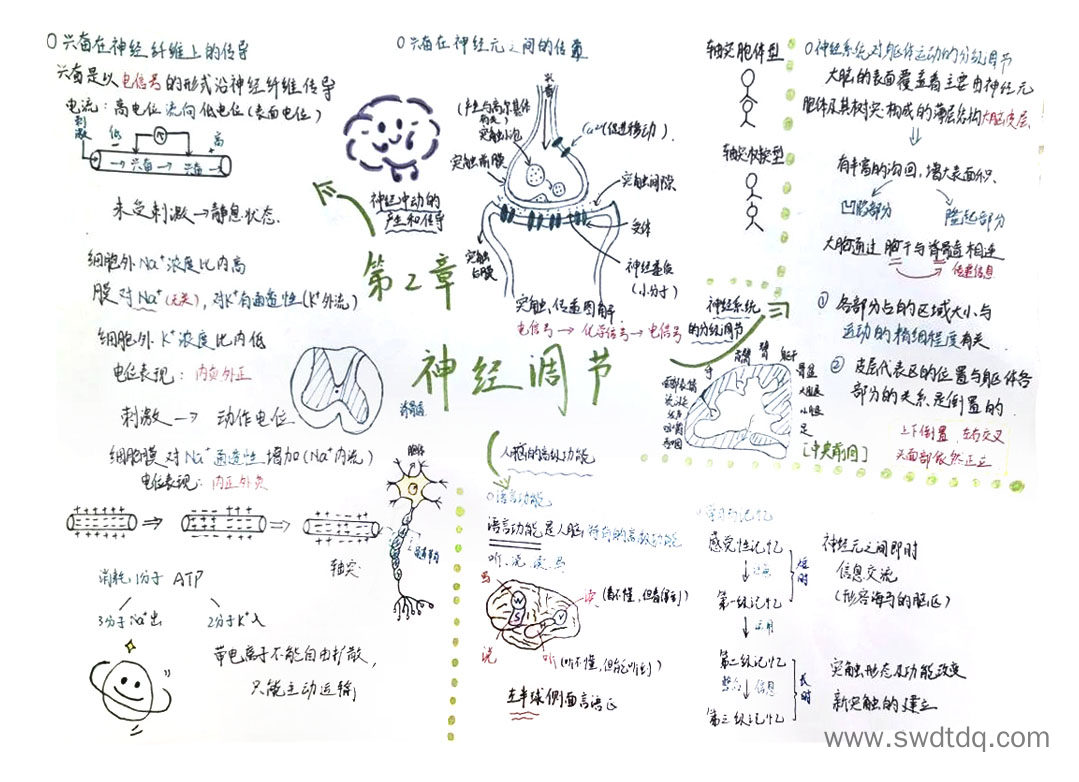 兴奋在神经纤维上的传导
兴奋是以电信号的形式沿神经纤维传导
电流：高电位流向低电位(表面电位)
刺激
低
高
→兴奋→ 兴奋→
未受刺激→静息状态.
细胞外Na⁺浓度比内高
膜对Na⁺(无关), 对K⁺有通透性(K⁺外流)
细胞外K⁺浓度比内低
电位表现：内负外正
刺激 → 动作电位
细胞膜对Na⁺通透性增加(Na⁺内流)
电位表现：内正外负
消耗1分子ATP
3分子Na⁺出
2分子K⁺入
带电离子不能自由扩散,
只能主动运输
胞体
轴突
神经冲动的
产生和传导
第2章
神经调节
兴奋在神经元之间的传递
兴奋
突触小泡
Ca²⁺(促进移动)
突触前膜
突触间隙
受体
突触后膜
神经递质
(小分子)
突触, 传递图解
电信号→化学信号→电信号
轴突胞体型
轴突树突型
神经系统
的分级调节
神经系统对躯体运动的分级调节
大脑的表面覆盖着主要由神经元
胞体及其树突构成的薄层结构大脑皮层.
有丰富的沟回, 增大表面积.
凹陷部分
隆起部分
大脑通过脑干与脊髓相连
传递信息
① 各部分占的区域大小与
运动的精细程度有关.
② 皮层代表区的位置与躯体各
部分的关系是倒置的.
上下倒置, 左右交叉
头面部依然正立
[中央前回]
人脑的高级功能
语言功能
语言功能是人脑特有的高级功能
听、说、读、写
写
W
S
V
读(看不懂, 但看得到)
说
听(听不懂, 但能听到)
左半球侧面言语区
学习与记忆
感觉性记忆
↓注意
第一级记忆
↓运用
第二级记忆
整合↓信息
第三级记忆
短时
长时
神经元之间即时
信息交流
(形容海马的脑区)
突触形态及功能改变
新突触的建立
www.swdtdq.com